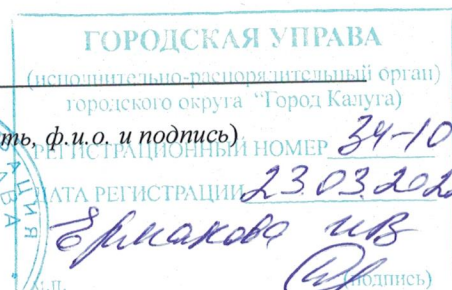 ГОРОДСКАЯ УПРАВА
(исполнительно-распорядительный орган)
городского округа "Город Калуга)
ть, ф.и.о. и подпись)
РЕГИСТРАЦИОННЫЙ НОМЕР 34-10
ДАТА РЕГИСТРАЦИИ 23.03.202
Ермакова ИВ
М.П. (подпись)